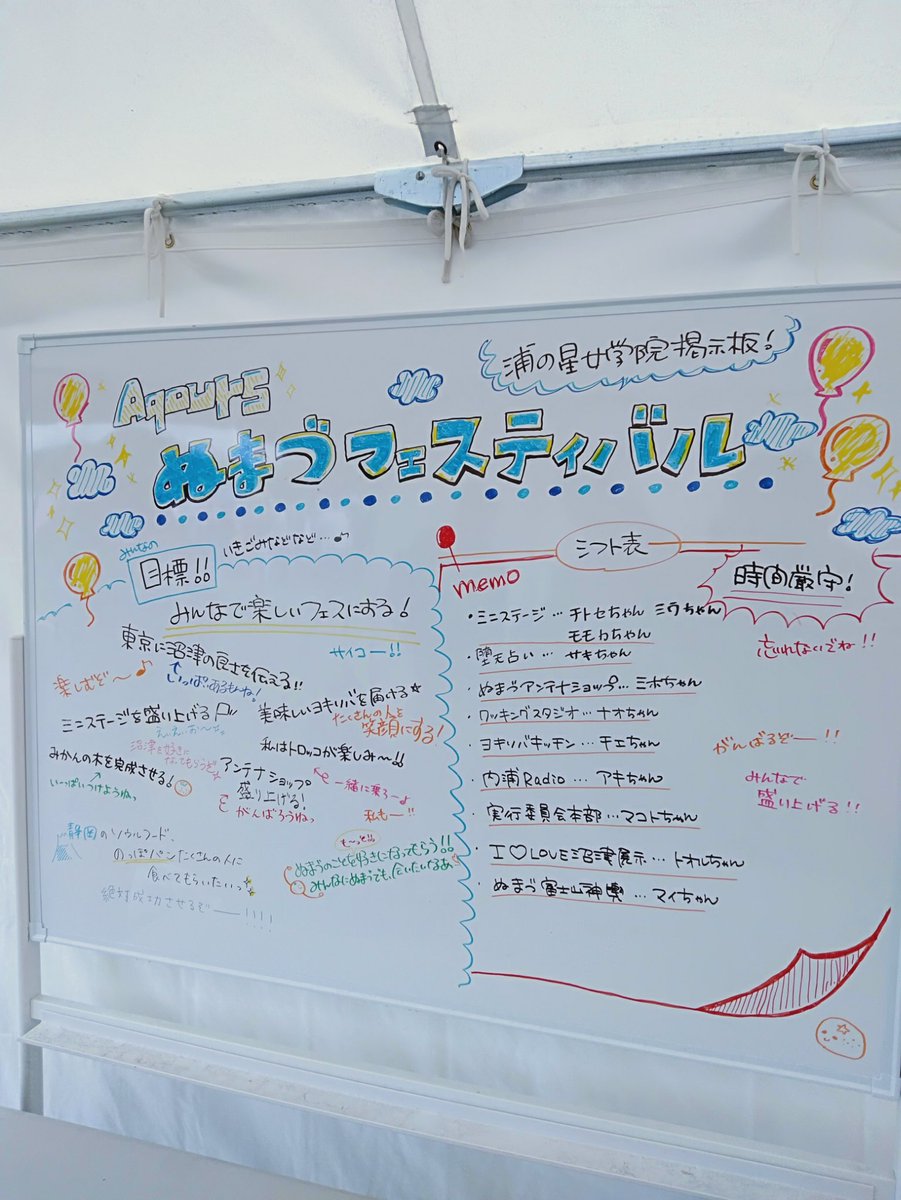 浦の星女学院掲示板!
Aqours
ぬまづフェスティバル
みんなの
目標!!
いきごみなどなど…♪
みんなで楽しいフェスにする!
サイコー!!
東京に沼津の良さを伝える!!
いっぱいあるもね!
楽しむぞ〜♪
ミニステージを盛り上げる
美味しいヨキソバを届ける☆
たくさんの人を
笑顔にする!
沼津を好きに
なってもらうぞ
私はトロッコが楽しみ〜!!
一緒に乗ろーよ
私も〜!!
みかんの木を完成させる!
いーっぱいつけようねっ
アンテナショップ
盛り上げる!
がんばろうねっ
静岡のソウルフード、
のっぽパンたくさんの人に
食べてもらいたいっ
も〜っと!!
ぬまづのことを好きになってもらう!!
絶対成功させるぞ――!!!!
シフト表
memo
時間厳守!
忘れないでね!!
・ミニステージ…チトセちゃん ミウちゃん
モモカちゃん
・堕天占い…サキちゃん
・ぬまづアンテナショップ…ミホちゃん
・ワッキングスタジオ…ナオちゃん
・ヨキソバキッチン…チエちゃん
・内浦Radio…アキちゃん
・実行委員会本部…マコトちゃん
・I♡LOVE沼津展示…トオルちゃん
・ぬまづ富士山神輿…マイちゃん
がんばるぞ――!!
みんなで
盛り上げる!!